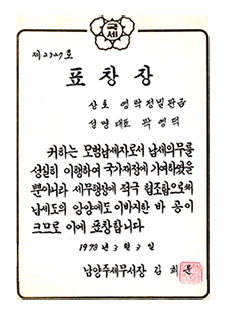 국세
제2327호
표창장
상호 영락정밀판금
성명 대표 곽영덕
귀하는 모범납세자로서 납세의무를
성실히 이행하여 국가재정에 기여하였을
뿐아니라 세무행정에 적극 협조함으로써
납세도의 앙양에도 이바지한 바 공이
크므로 이에 표창합니다.
1978년 3월 3일
남양주세무서장 김희운